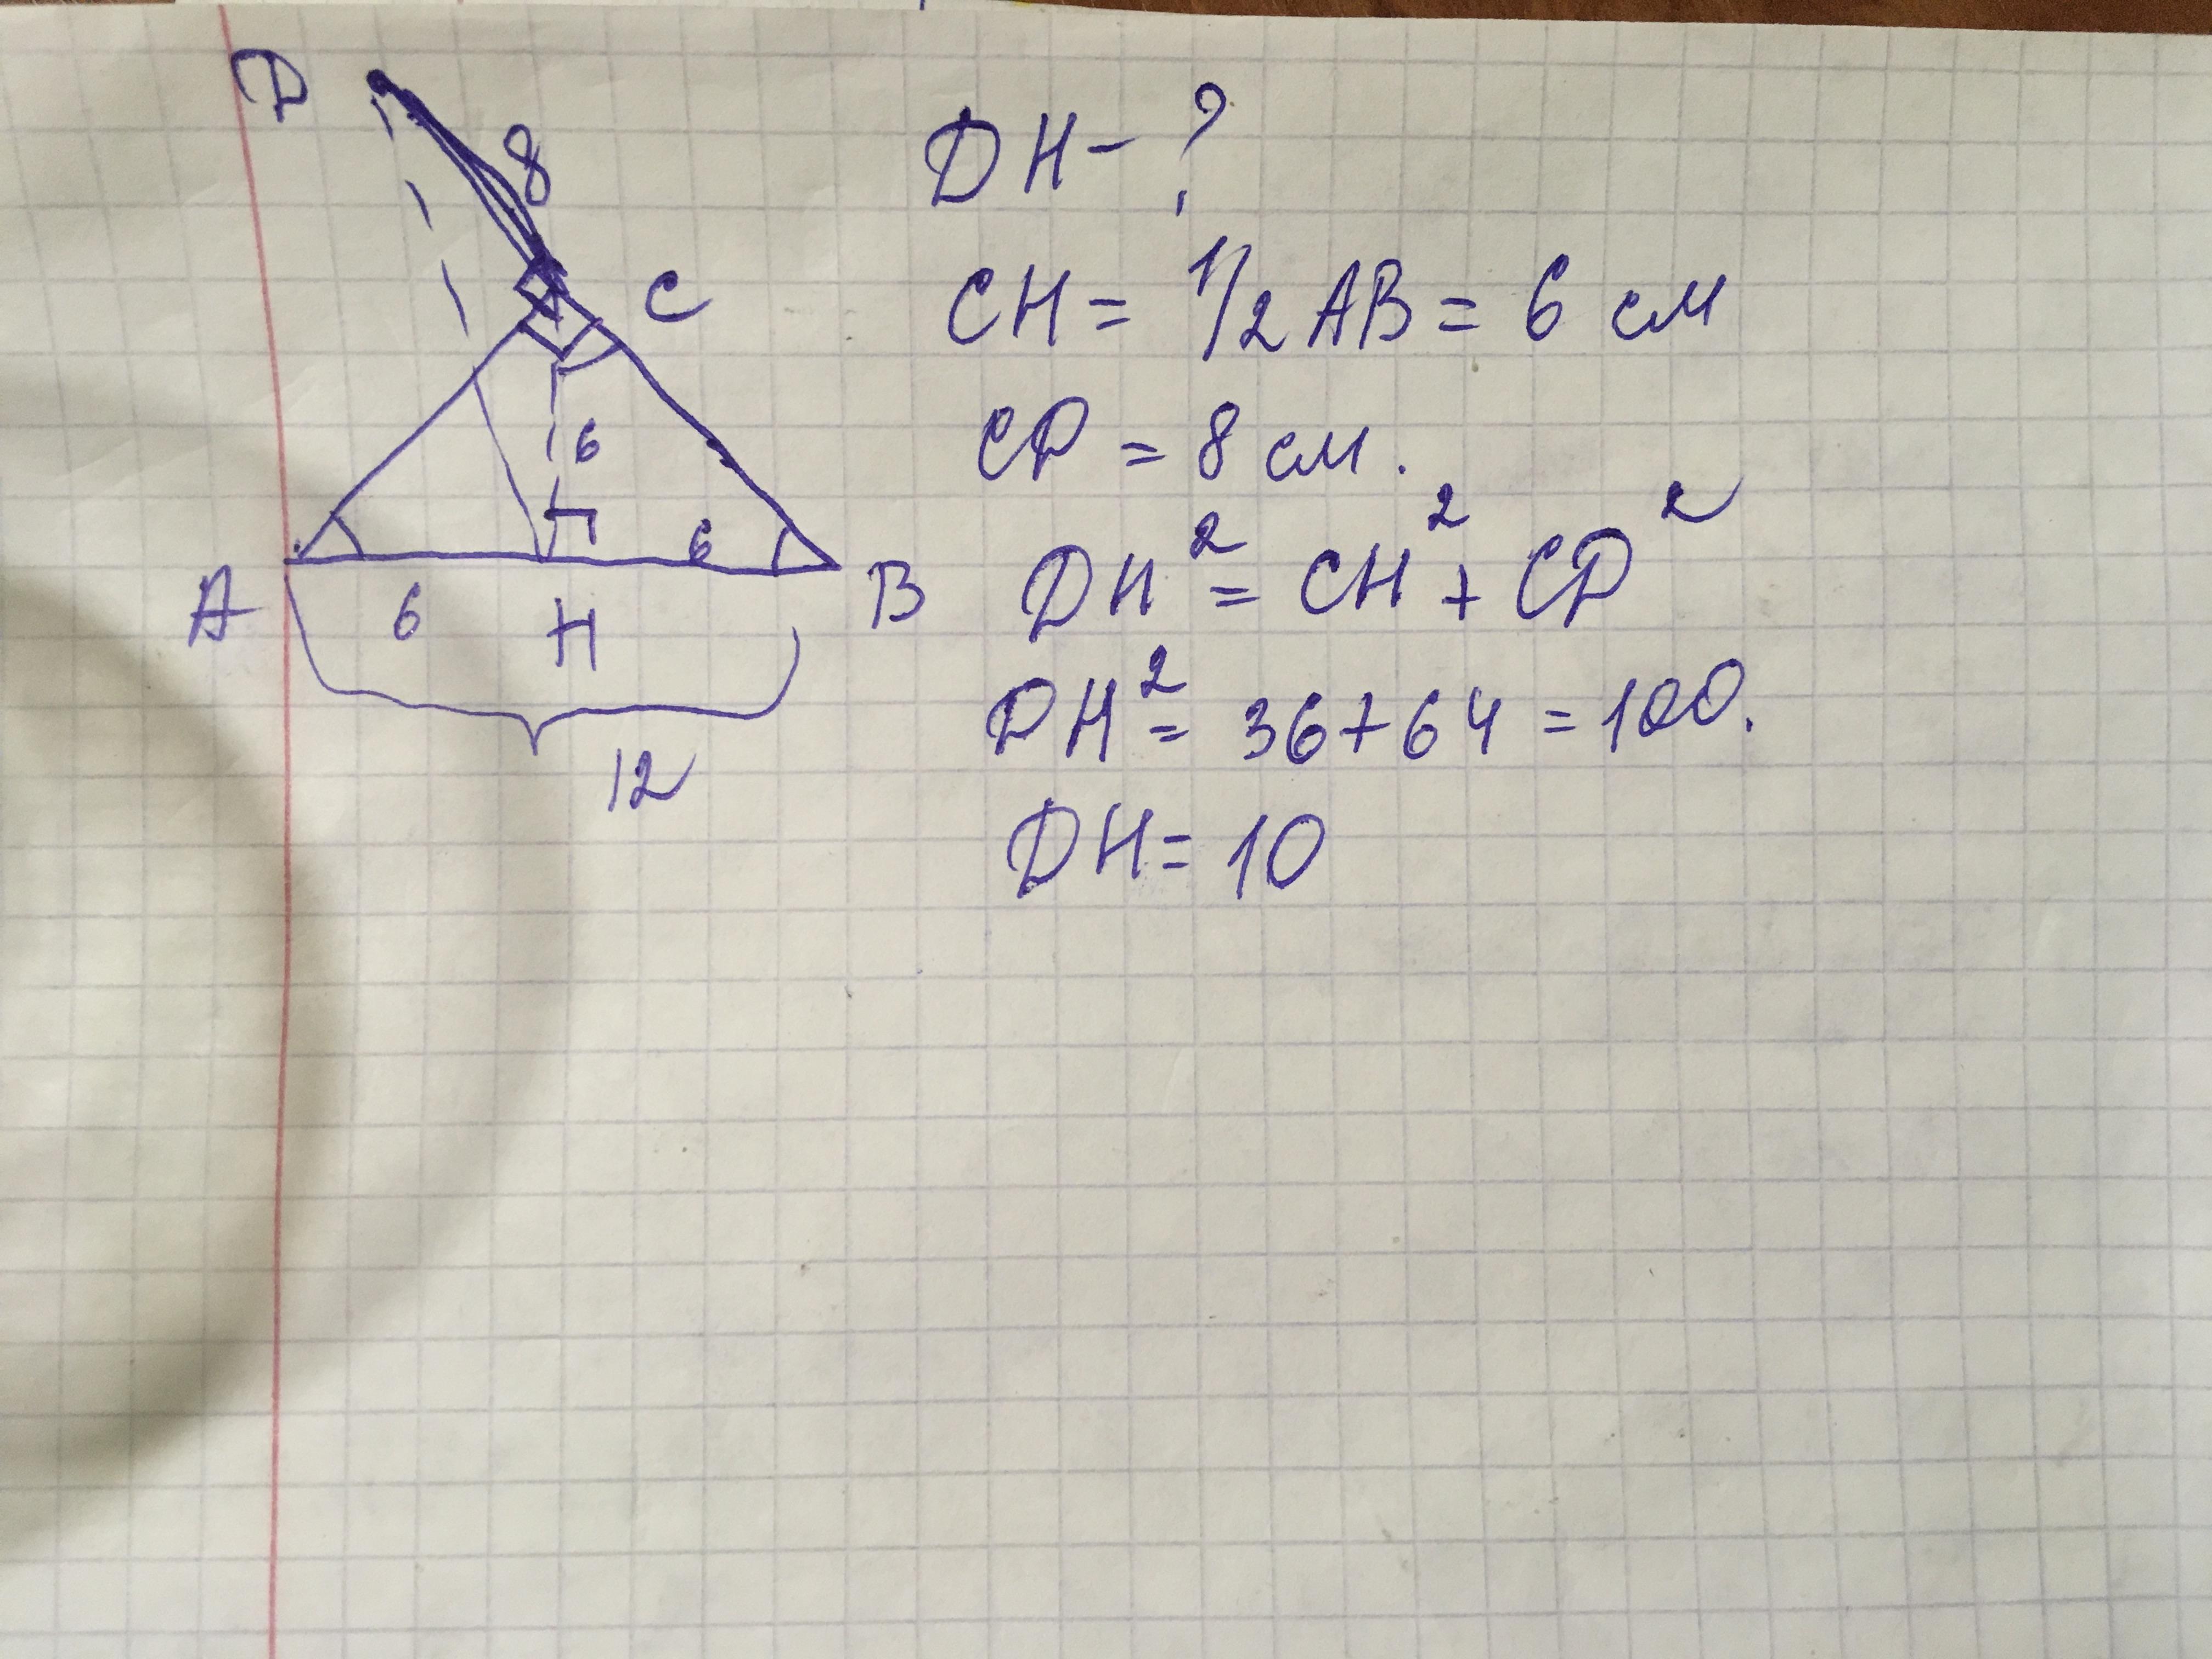 D
8
C
6
6
A
6
H
B
12
DH - ?
CH = 1/2 AB = 6 см
CD = 8 см.
DH² = CH² + CD²
DH² = 36 + 64 = 100.
DH = 10